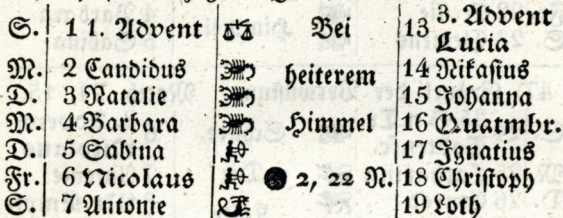 S. 1 1. Advent Bei 13 3. Advent
Lucia
M. 2 Candidus heiterem 14 Nikasius
D. 3 Natalie 15 Johanna
M. 4 Barbara Himmel 16 Quatmbr.
D. 5 Sabina 17 Ignatius
Fr. 6 Nicolaus 2, 22 N. 18 Christoph
S. 7 Antonie 19 Loth